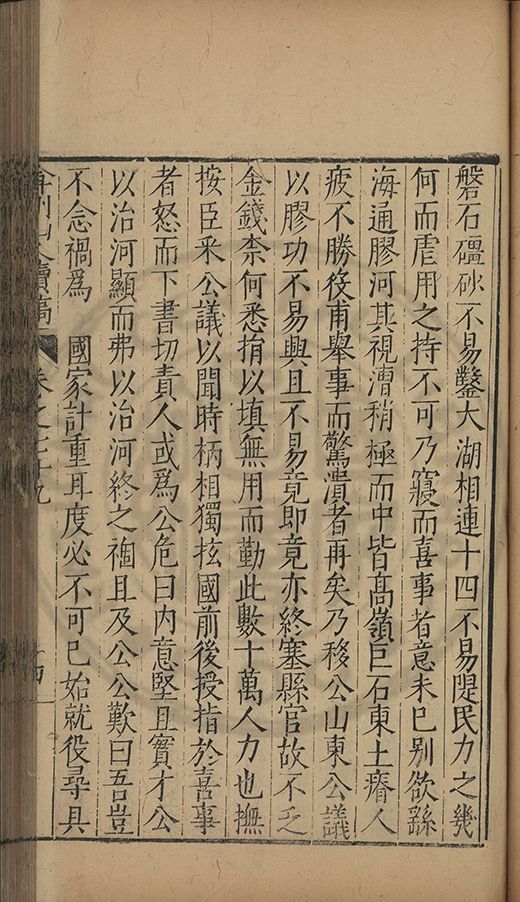 磐石礓砂不易鑿大湖相連十四不易隄民力之幾
何而虐用之持不可乃寢而喜事者意未已别欲繇
海通膠河其視漕稍極而中皆高嶺巨石東土瘠人
疲不勝役甫舉事而驚潰者再矣乃移公山東公議
以膠功不易興且不易竟即竟亦終塞縣官故不乏
金錢柰何悉捐以填無用而勤此數十萬人力也撫
按臣采公議以聞時柄相獨㧓國前後授指於喜事
者怒而下書切責人或爲公危曰内意堅且實才公
以治河顯而弗以治河終之禍且及公公歎曰吾豈
不念禍爲　國家計重耳度必不可已始就役尋具
弇州山人續稿　卷之七十九　十四